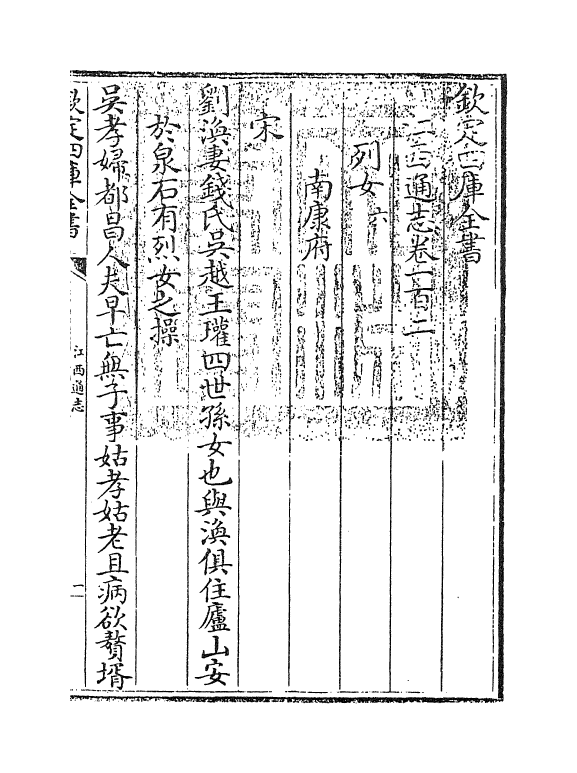 欽定四庫全書
江西通志卷一百二
列女六
南康府
宋
劉渙妻錢氏吳越王瓘四世孫女也與渙俱住廬山安
於泉石有烈女之操
吳孝婦都昌人夫早亡無子事姑孝姑老且病欲贅壻
欽定四庫全書
江西通志